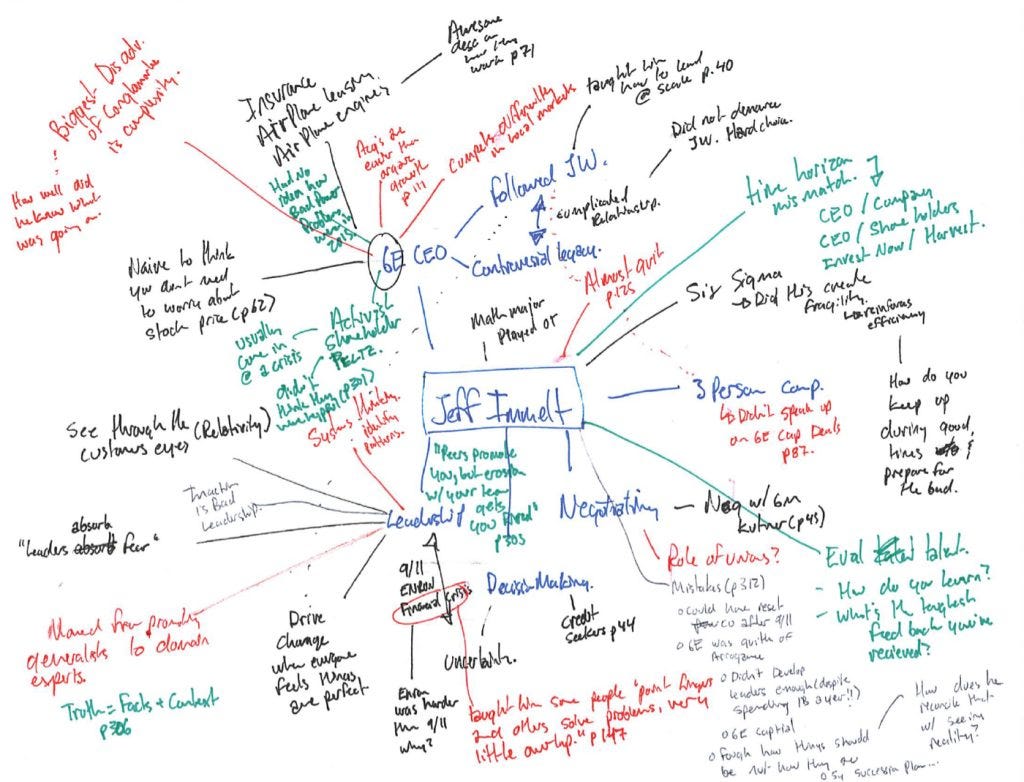 Biggest Disadv.
of Conglomorate
is complexity.
How well did
he know what
was going on.
Insurance
Airplane leasing
Airplane engines
Awesome
desc on
how they
work p71
Acq's are
easier than
organic
growth
p 111
Compete differently
in local markets
taught him
how to lead
@ scale p.40
Did not denounce
JW. Hard choice.
Followed JW.
complicated
Relationship.
Controversial legacy.
Had no
idea how
Bad Power
Problems
were in
2015.
GE CEO
time horizon
mismatch.
CEO / Company
CEO / Share holders
Invest Now / Harvest.
Naive to think
you don't need
to worry about
stock price (p62)
usually
come in
@ a crisis
Activist
Shareholder
PELTZ.
didn't
think they
were hyper (p301)
Math major
Played OT
Almost quit
p.125
Six Sigma
Did this create
fragility.
efficiency
How do you
keep up
during good,
times &
prepare for
the bad.
Jeff Immelt
3 Person comp.
Didn't speak up
on GE Cap Deals
p87.
See through the (Relativity)
customers eyes
Systems thinking.
identify
patterns.
Inaction
is Bad
Leadership.
absorb
"Leaders absorb fear"
Leadership
"Peers promote
you, but erosion
w/ your team
gets
you Fired"
p303
Negotiating
Neg w/ GM
kutner (p45)
Role of unions?
Eval talent.
- How do you learn?
- What's the toughest
feedback you've
recieved?
Moved from promoting
generalists to domain
experts.
Truth = Facts + Context
p306
Drive
Change
when everyone
feels things
are perfect
9/11
ENRON
Financial Crisis
Enron
was harder
than 9/11
why?
Decision Making.
Uncertainty.
Credit
seekers p44
taught him some people "point fingers
and others solve problems, very
little overlap." p147
Mistakes (p312)
o Could have reset
co after 9/11
o GE was guilty of
Arrogance
o Didn't Develop
leaders enough (despite
spending 1B a year!!)
o GE capital
o Fough how things should
be not how they are
o Sy succession plan...
How does he
reconcile that
w/ seeing
reality?